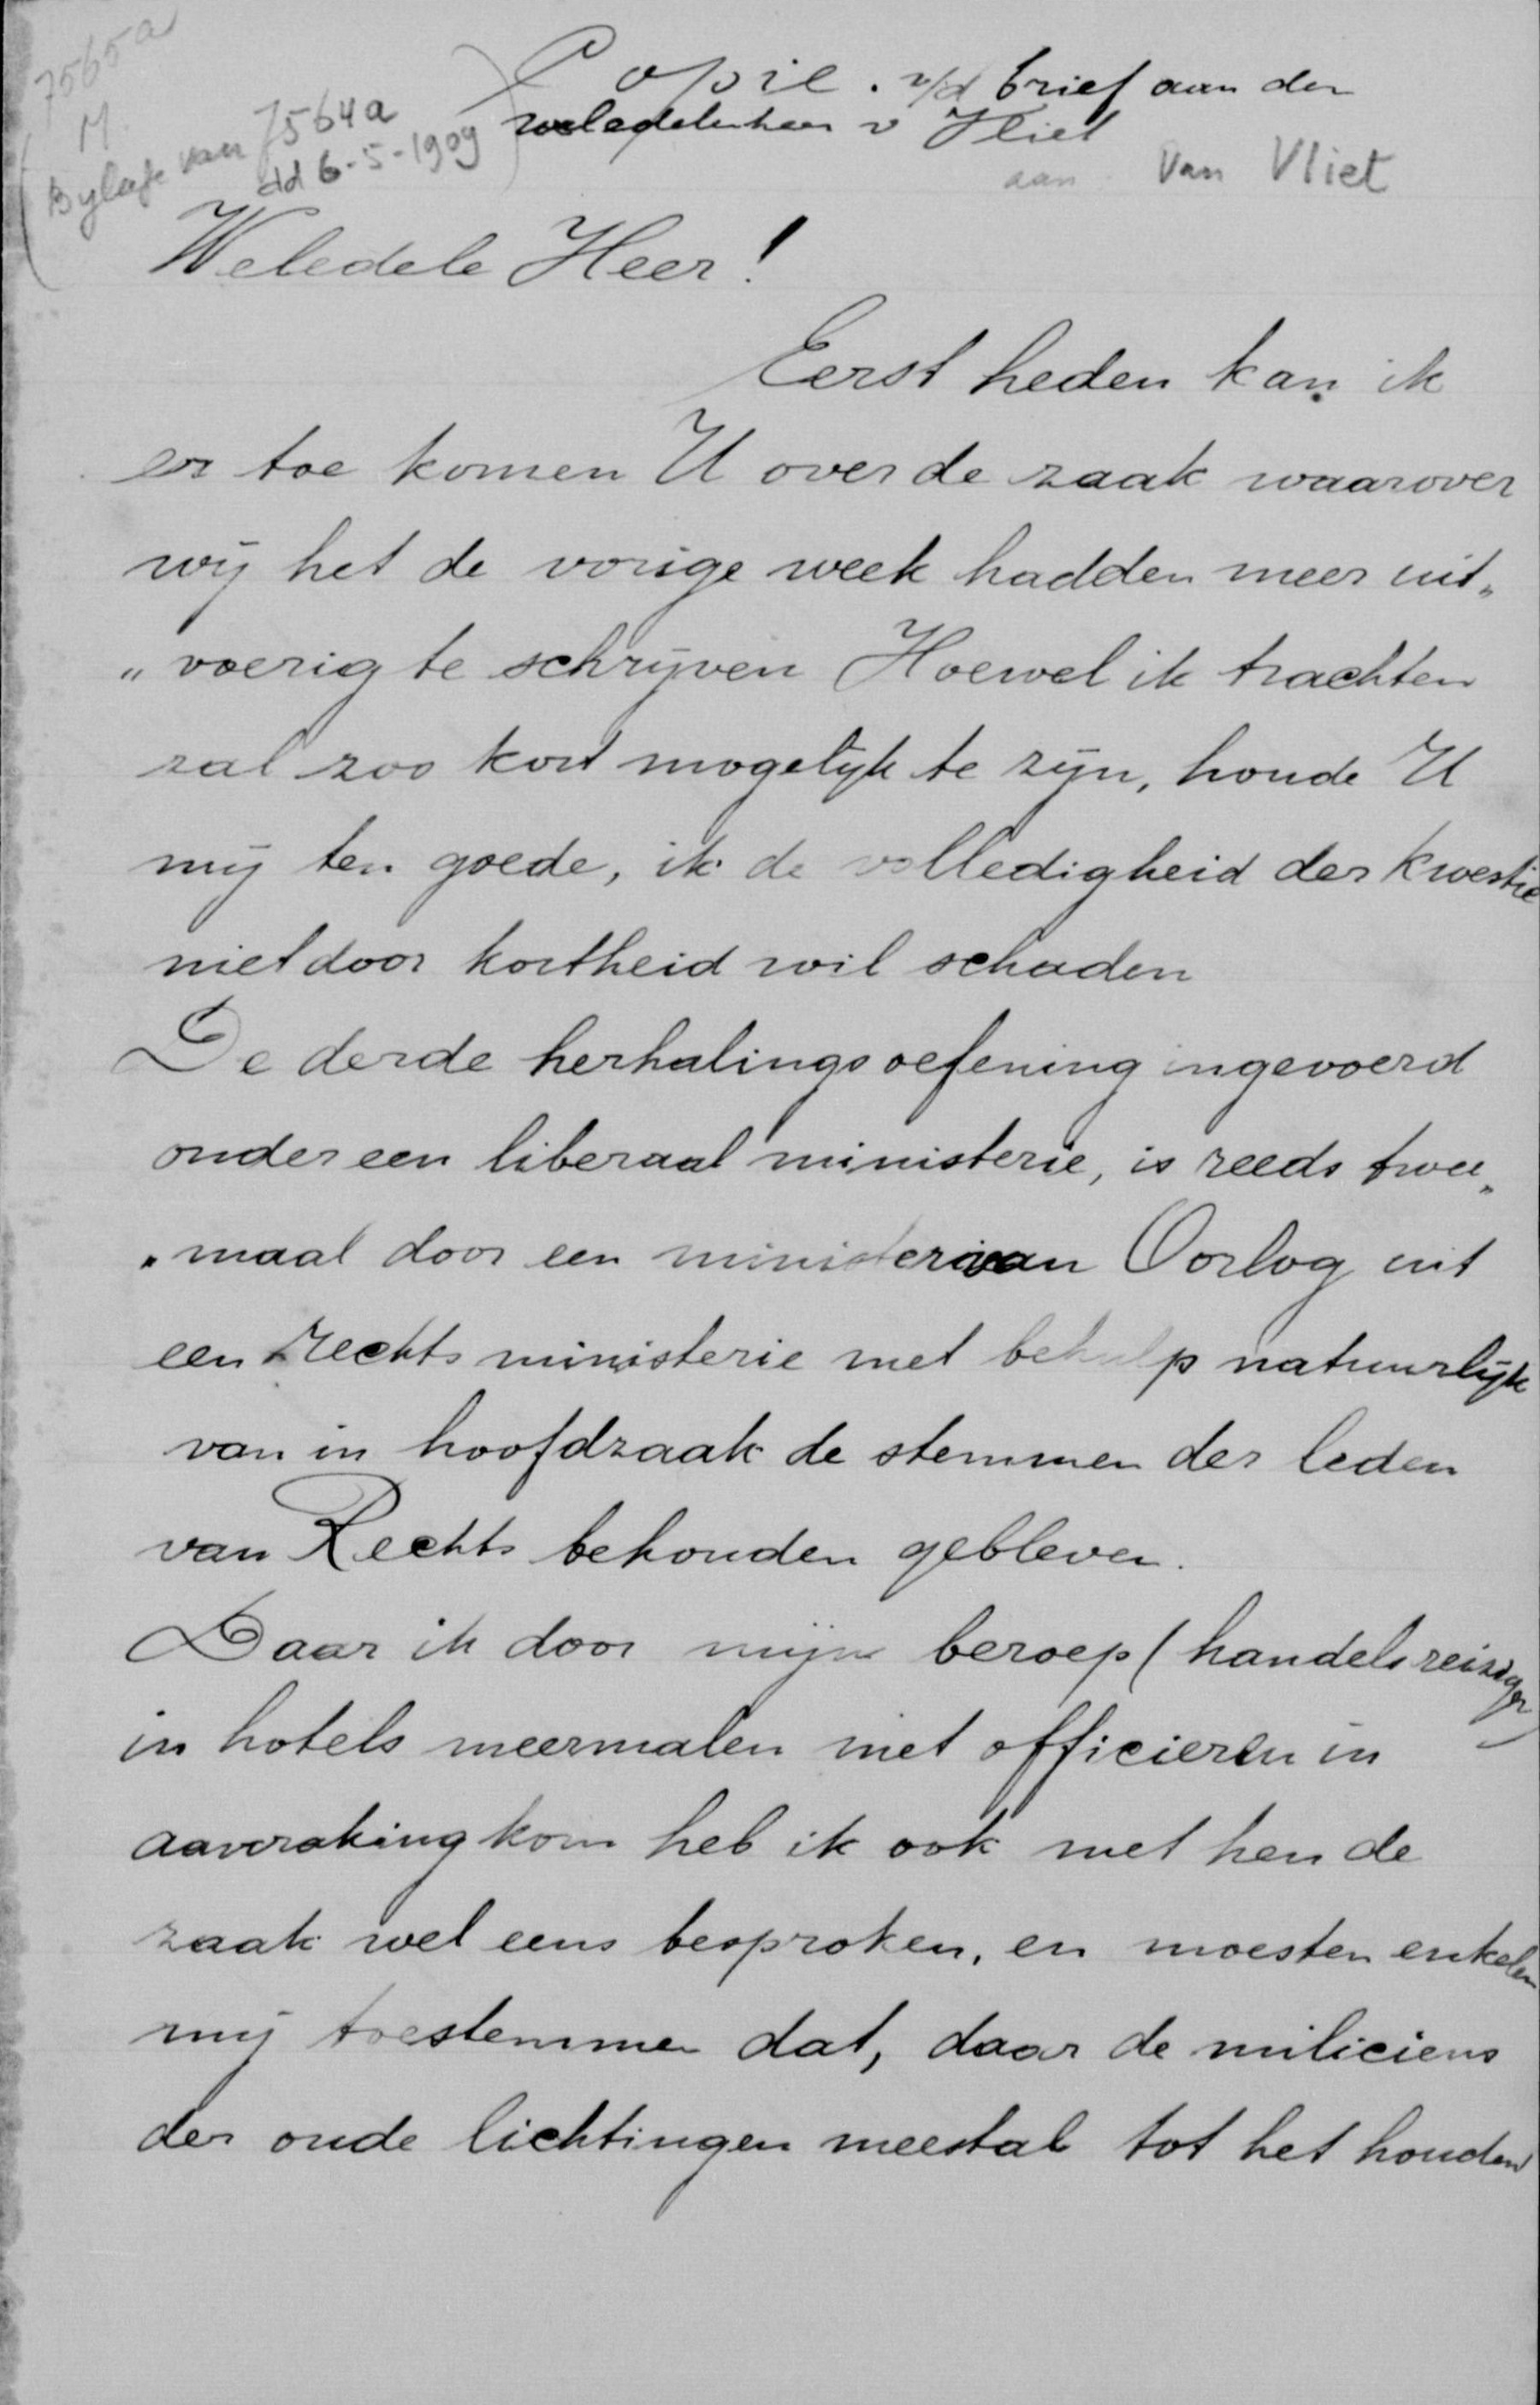 7565a
M
Bylage van 7564a
dd 6-5-1909
Copie. v/d brief aan den
weledelenheer v Vliet
aan Van Vliet
Weledele Heer!
Eerst heden kan ik
er toe komen U over de zaak waarover
wij het de vorige week hadden meer uit„
„voerig te schrijven Hoewel ik trachten
zal zoo kort mogelijk te zijn, houde U
mij ten goede, ik de volledigheid der kwestie
niet door kortheid wil schaden
De derde herhalingsoefening ingevoerd
onder een liberaal ministerie, is reeds twee„
„maal door een minister van Oorlog uit
een Rechts ministerie met behulp natuurlijk
van in hoofdzaak de stemmen der leden
van Rechts behouden gebleven.
Daar ik door mijn beroep (handelsreiziger)
in hotels meermalen met officieren in
aanraking kom heb ik ook met hen de
zaak wel eens besproken, en moesten enkelen
mij toestemmen dat, daar de miliciens
der oude lichtingen meestal tot het houden